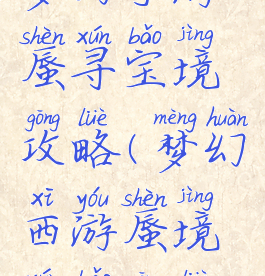 shèn xún bǎo jìng
蜃寻宝境
gōng lüè mèng huàn
攻略(梦幻
xī yóu shèn jìng
西游蜃境